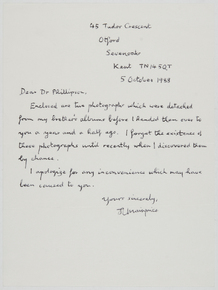 45 Tudor Crescent
Otford
Sevenoaks
Kent TN14 5QT
5 October 1988
Dear Dr Phillipson,
Enclosed are two photographs which were detached
from my brother's albums before I handed them over to
you a year and a half ago. I forgot the existence of
these photographs until recently when I discovered them
by chance.
I apologize for any inconvenience which may have
been caused to you.
Yours sincerely,